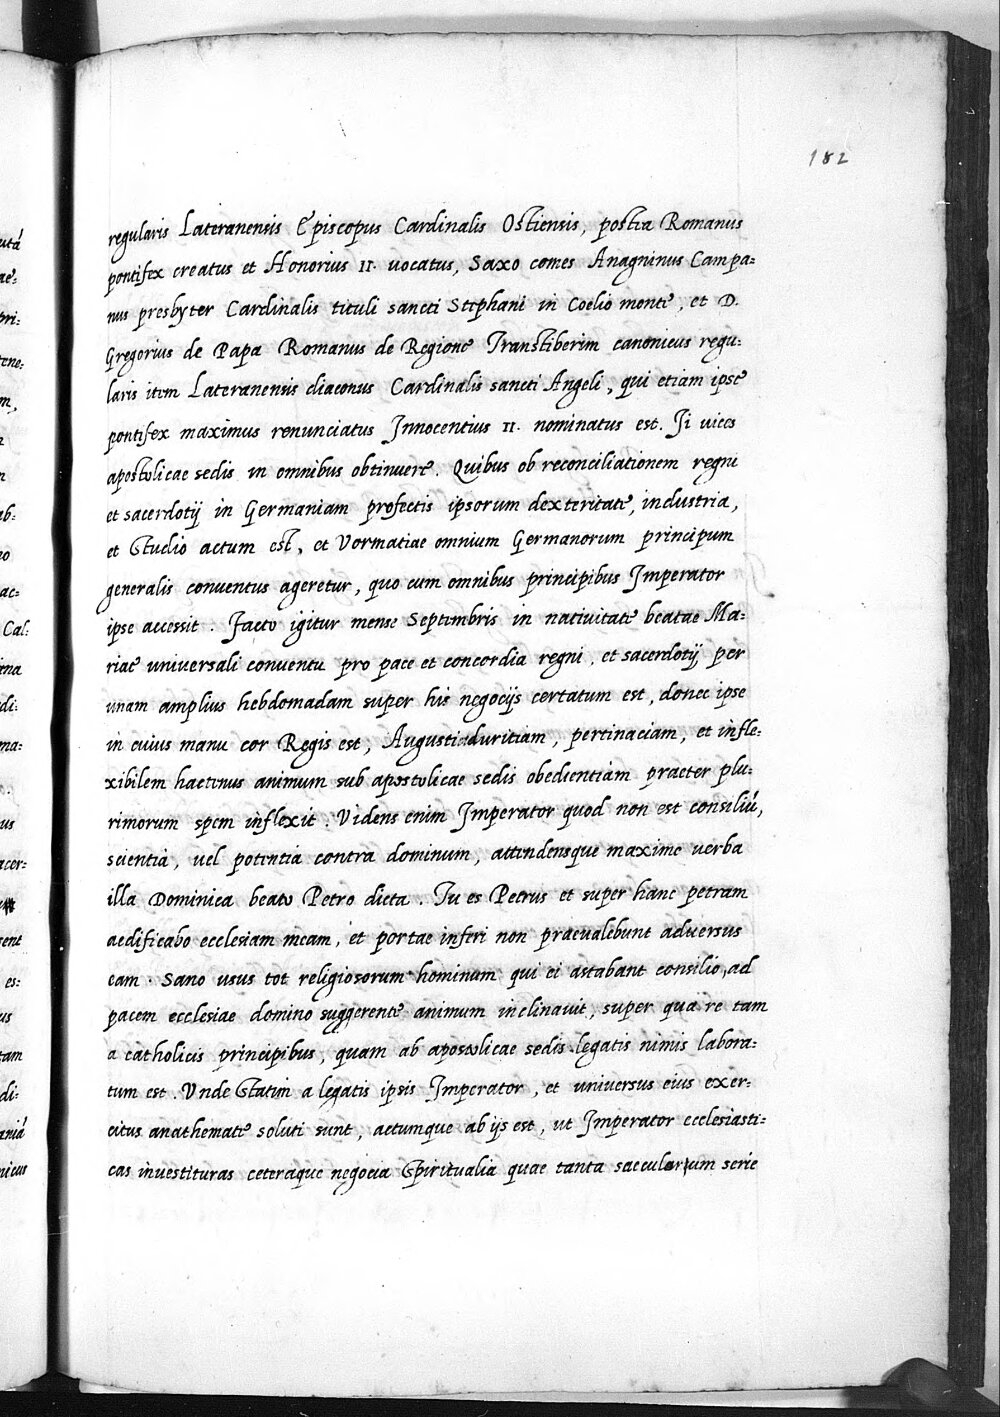 182
regularis Lateranensis Episcopus Cardinalis Ostiensis, postea Romanus
pontifex creatus et Honorius II. vocatus, Saxo comes Anagninus Campa=
nus presbyter Cardinalis tituli sancti Stephani in Coelio monte, et D.
Gregorius de Papa Romanus de Regione Transtiberim canonicus regu:
laris item Lateranensis diaconus Cardinalis sancti Angeli, qui etiam ipse
pontifex maximus renunciatus Innocentius II. nominatus est. Ii vices
apostolicae sedis in omnibus obtinuere. Quibus ob reconciliationem regni
et sacerdotij in Germaniam profectis ipsorum dexteritate, industria,
et studio actum est, et Vormatiae omnium Germanorum principum
generalis conventus ageretur, quo cum omnibus principibus Imperator
ipse accessit. Facto igitur mense Septembris in nativitate beatae Ma:
riae universali conventu pro pace et concordia regni, et sacerdotij per
unam amplius hebdomadam super his negocijs certatum est, donec ipse
in cuius manu cor Regis est, Augusti duritiam, pertinaciam, et infle:
xibilem hactenus animum sub apostolicae sedis obedientiam praeter plu:
rimorum spem inflexit. Videns enim Imperator quod non est consiliũ,
scientia, vel potentia contra dominum, attendensque maxime verba
illa Dominica beato Petro dicta. Tu es Petrus et super hanc petram
aedificabo ecclesiam meam, et portae inferi non praevalebunt adversus
eam. Sano usus tot religiosorum hominum qui ei astabant consilio, ad
pacem ecclesiae domino suggerente animum inclinavit, super qua re tam
a catholicis principibus, quam ab apostolicae sedis legatis nimis labora:
tum est. Unde statim a legatis ipsis Imperator, et universus eius exer:
citus anathemate soluti sunt, actumque ab ijs est, ut Imperator ecclesiasti:
cas investituras ceteraque negocia spiritualia quae tanta saecularium serie